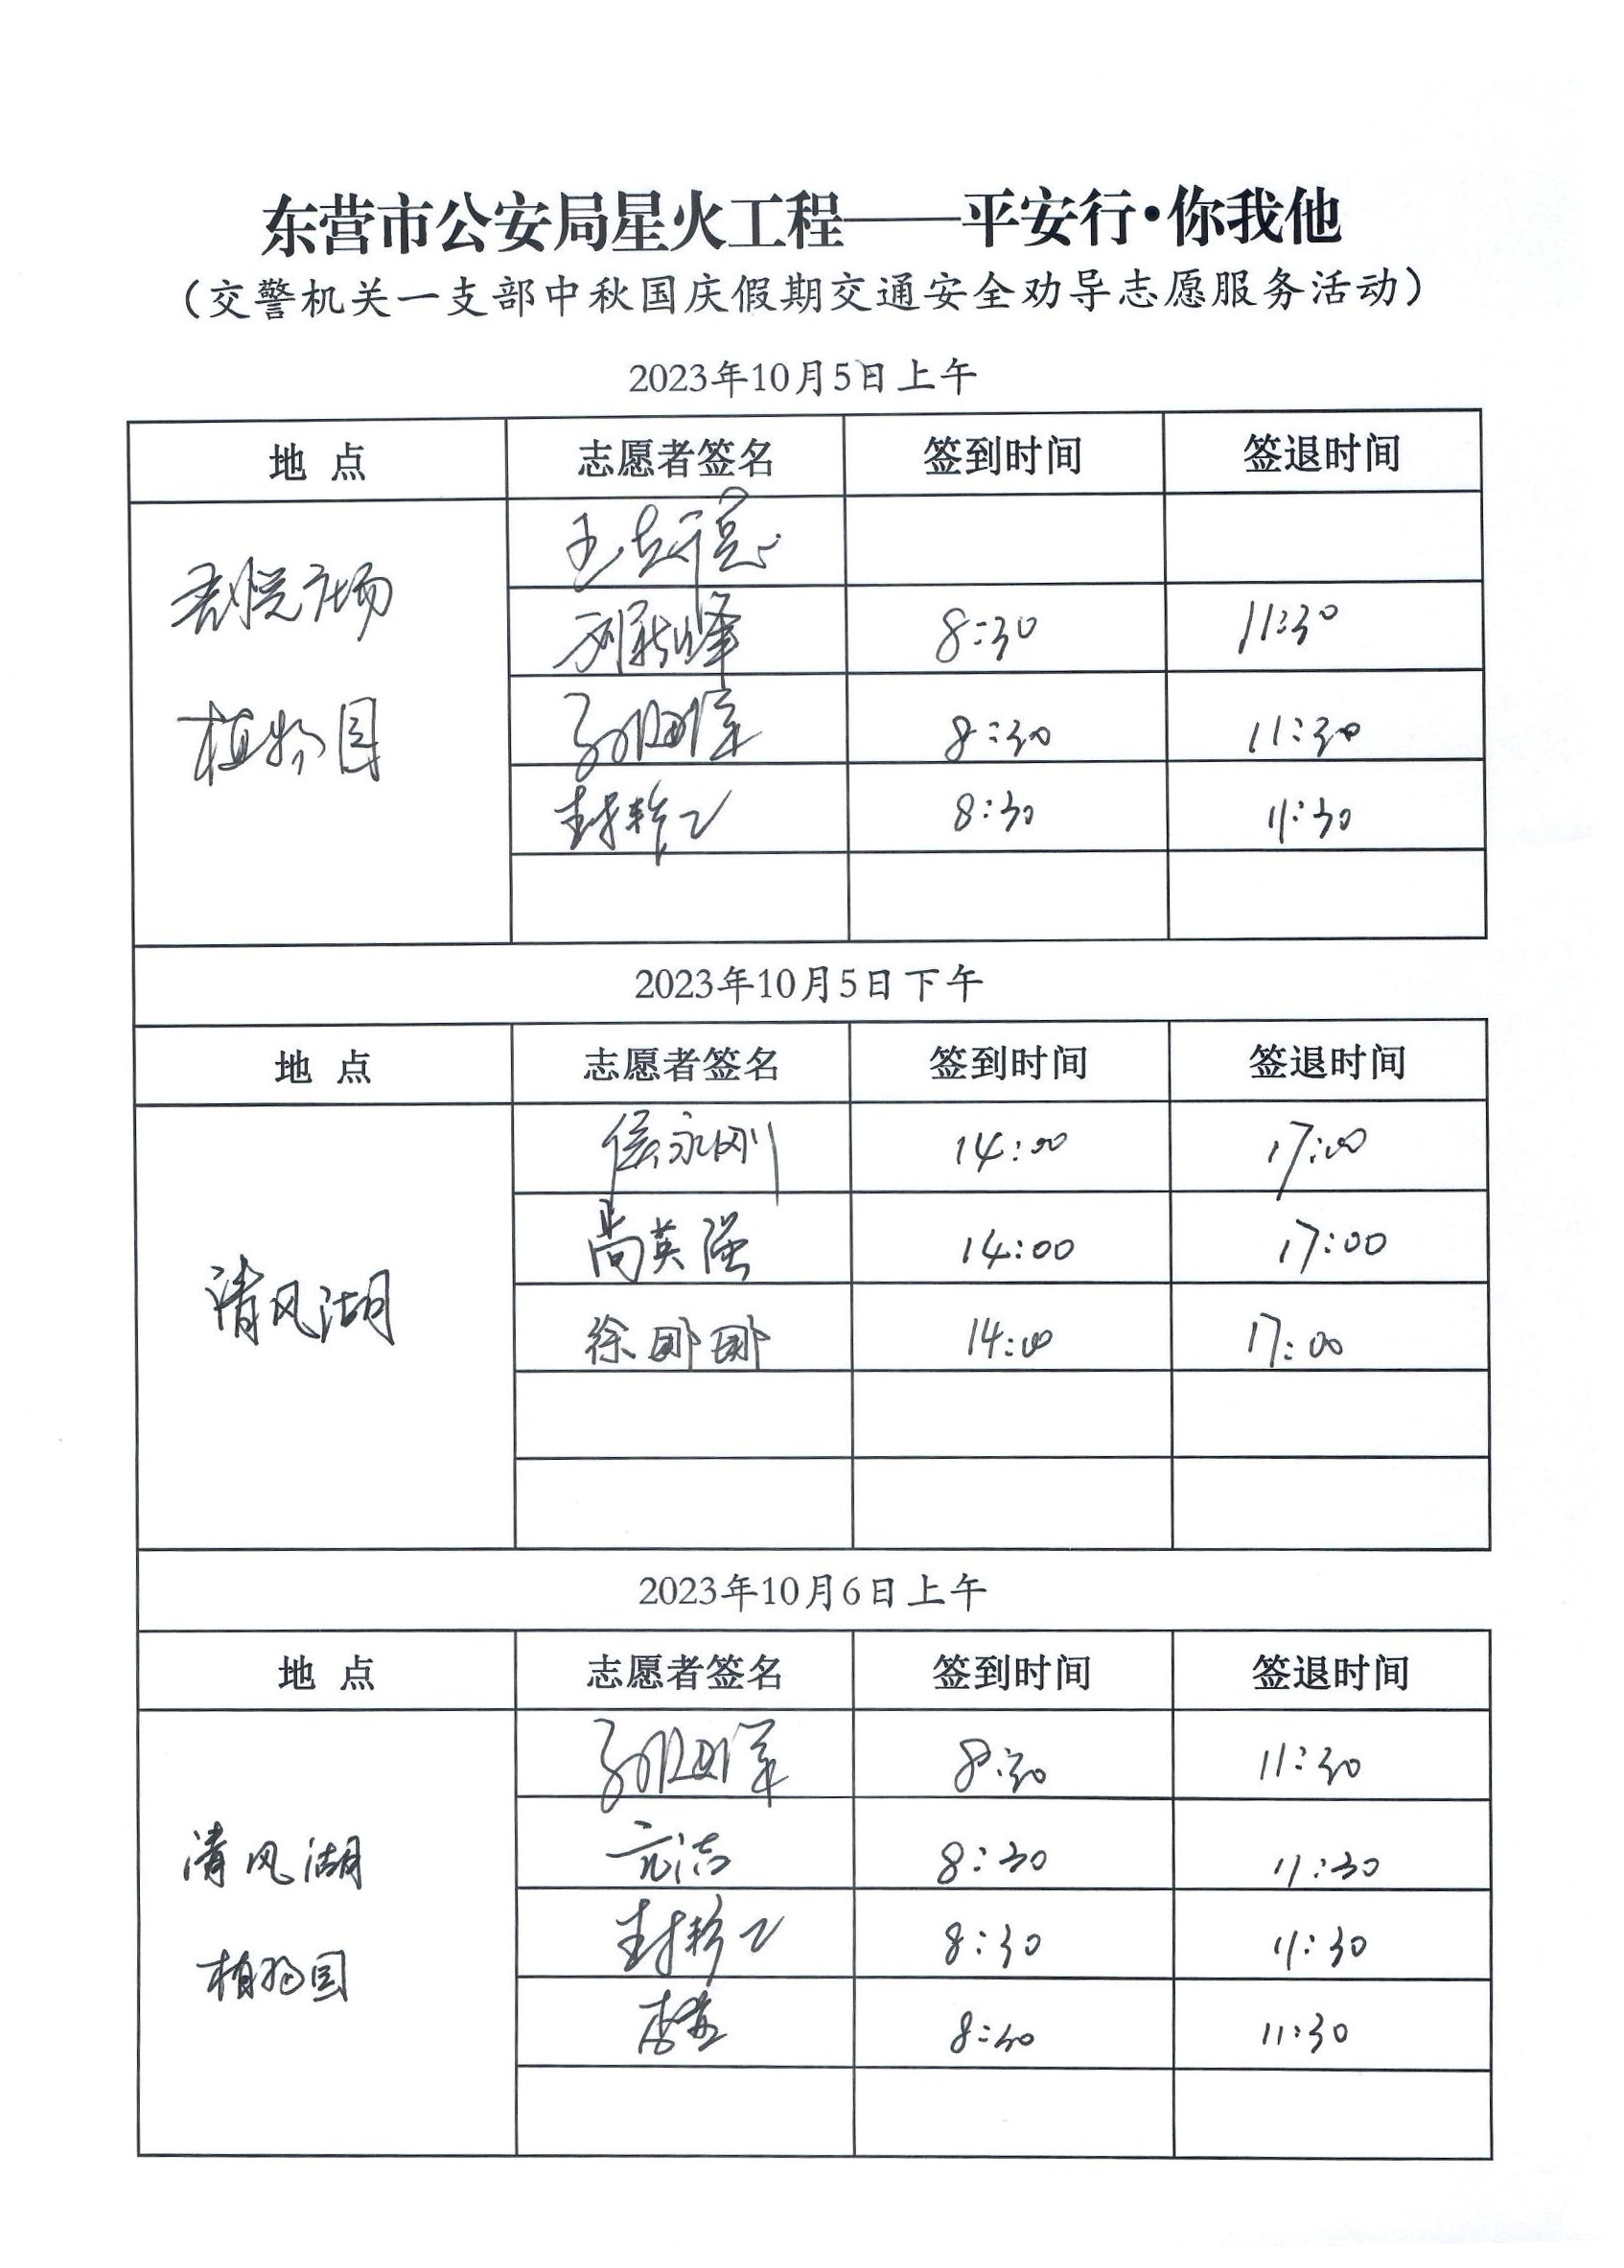 东营市公安局星火工程——平安行·你我他
（交警机关一支部中秋国庆假期交通安全劝导志愿服务活动）
2023年10月5日上午
地 点 志愿者签名 签到时间 签退时间
剧院广场
植物园
8:30 11:30
8:30 11:30
8:30 11:30
2023年10月5日下午
地 点 志愿者签名 签到时间 签退时间
清风湖
侯永刚 14:00 17:00
尚英强 14:00 17:00
徐娜娜 14:00 17:00
2023年10月6日上午
地 点 志愿者签名 签到时间 签退时间
清风湖
植物园
8:30 11:30
8:30 11:30
8:30 11:30
8:30 11:30